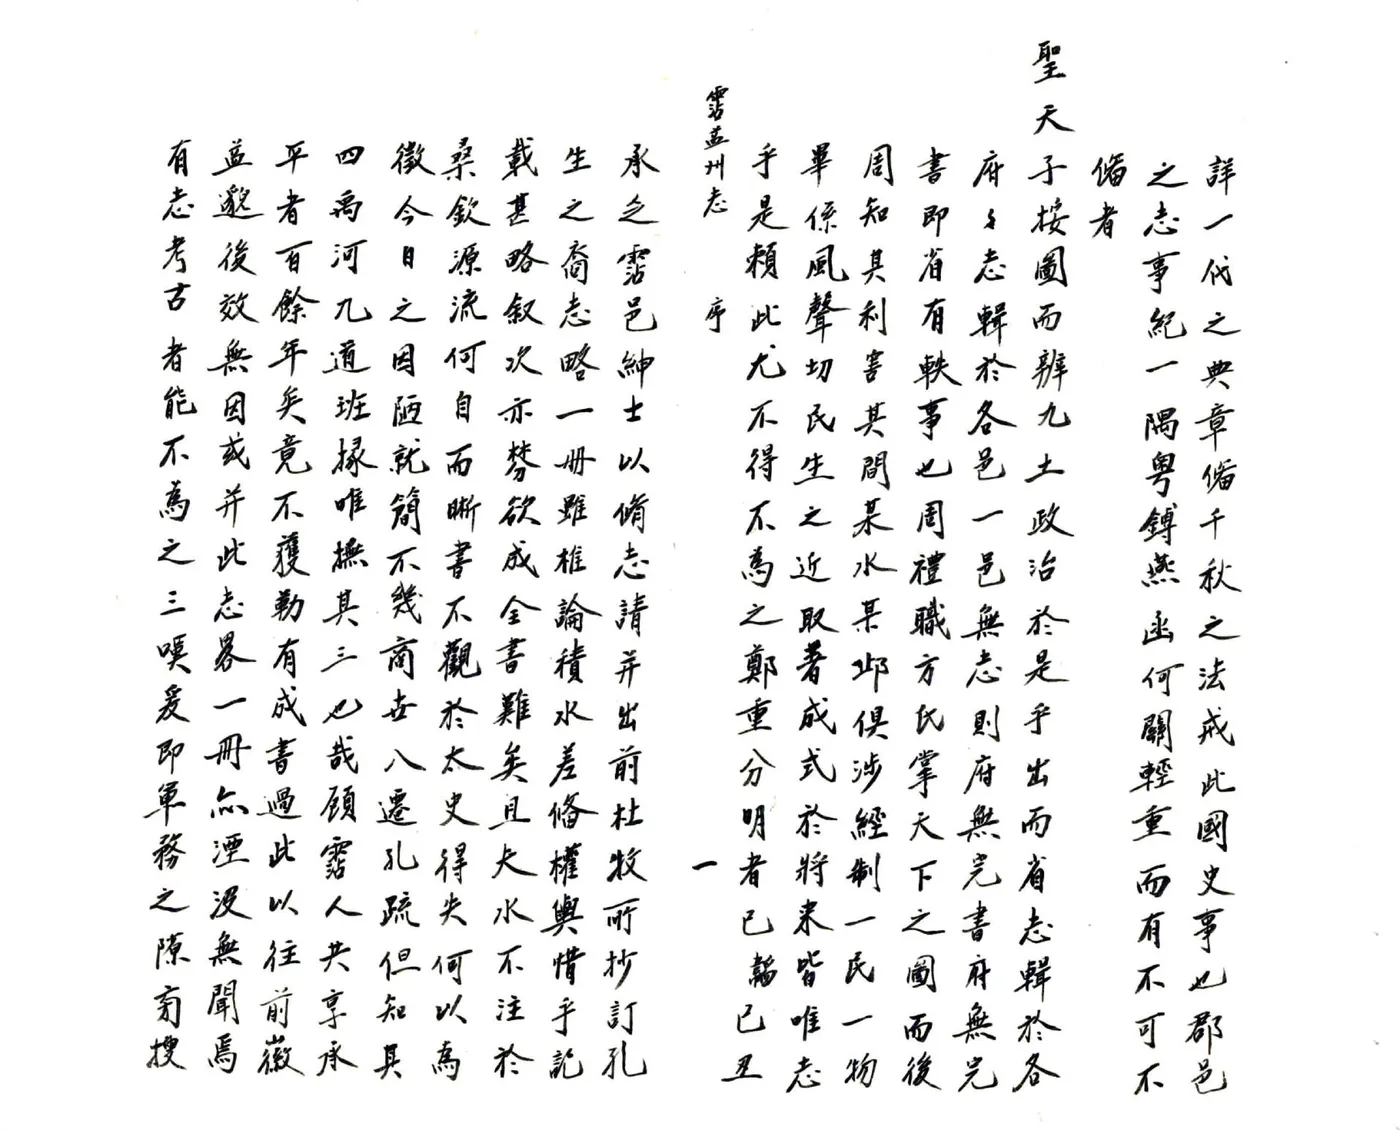 詳一代之典章俻千秋之法戒此國史事也郡邑
之志事紀一隅粤鏄燕函何關輕重而有不可不
俻者
聖天子按圖而辨九土政治於是乎出而省志輯於各
府々志輯於各邑一邑無志則府無完書府無完
書即省有軼事也周禮職方氏掌天下之圖而後
周知其利害其間某水某邱俱涉經制一民一物
畢係風聲切民生之近取著成式於將来皆唯志
乎是頼此尤不得不為之鄭重分明者已韜己丑
霑益州志 序 一
承乏霑邑紳士以脩志請并出前杜牧所抄訂孔
生之裔志略一册雖椎論積水差俻權輿惜乎記
載甚略叙次亦棼欲成全書難矣且大水不注於
桑欽源流何自而晰書不觀於太史得失何以為
徵今日之因陋就簡不幾商世八遷孔疏但知其
四禹河九道班掾唯撫其三也哉顧霑人共享承
平者百餘年矣竟不獲勒有成書過此以往前徽
益邈後效無因或并此志畧一冊亦湮没無聞焉
有志考古者能不為之三嘆爰即軍務之隙旁搜